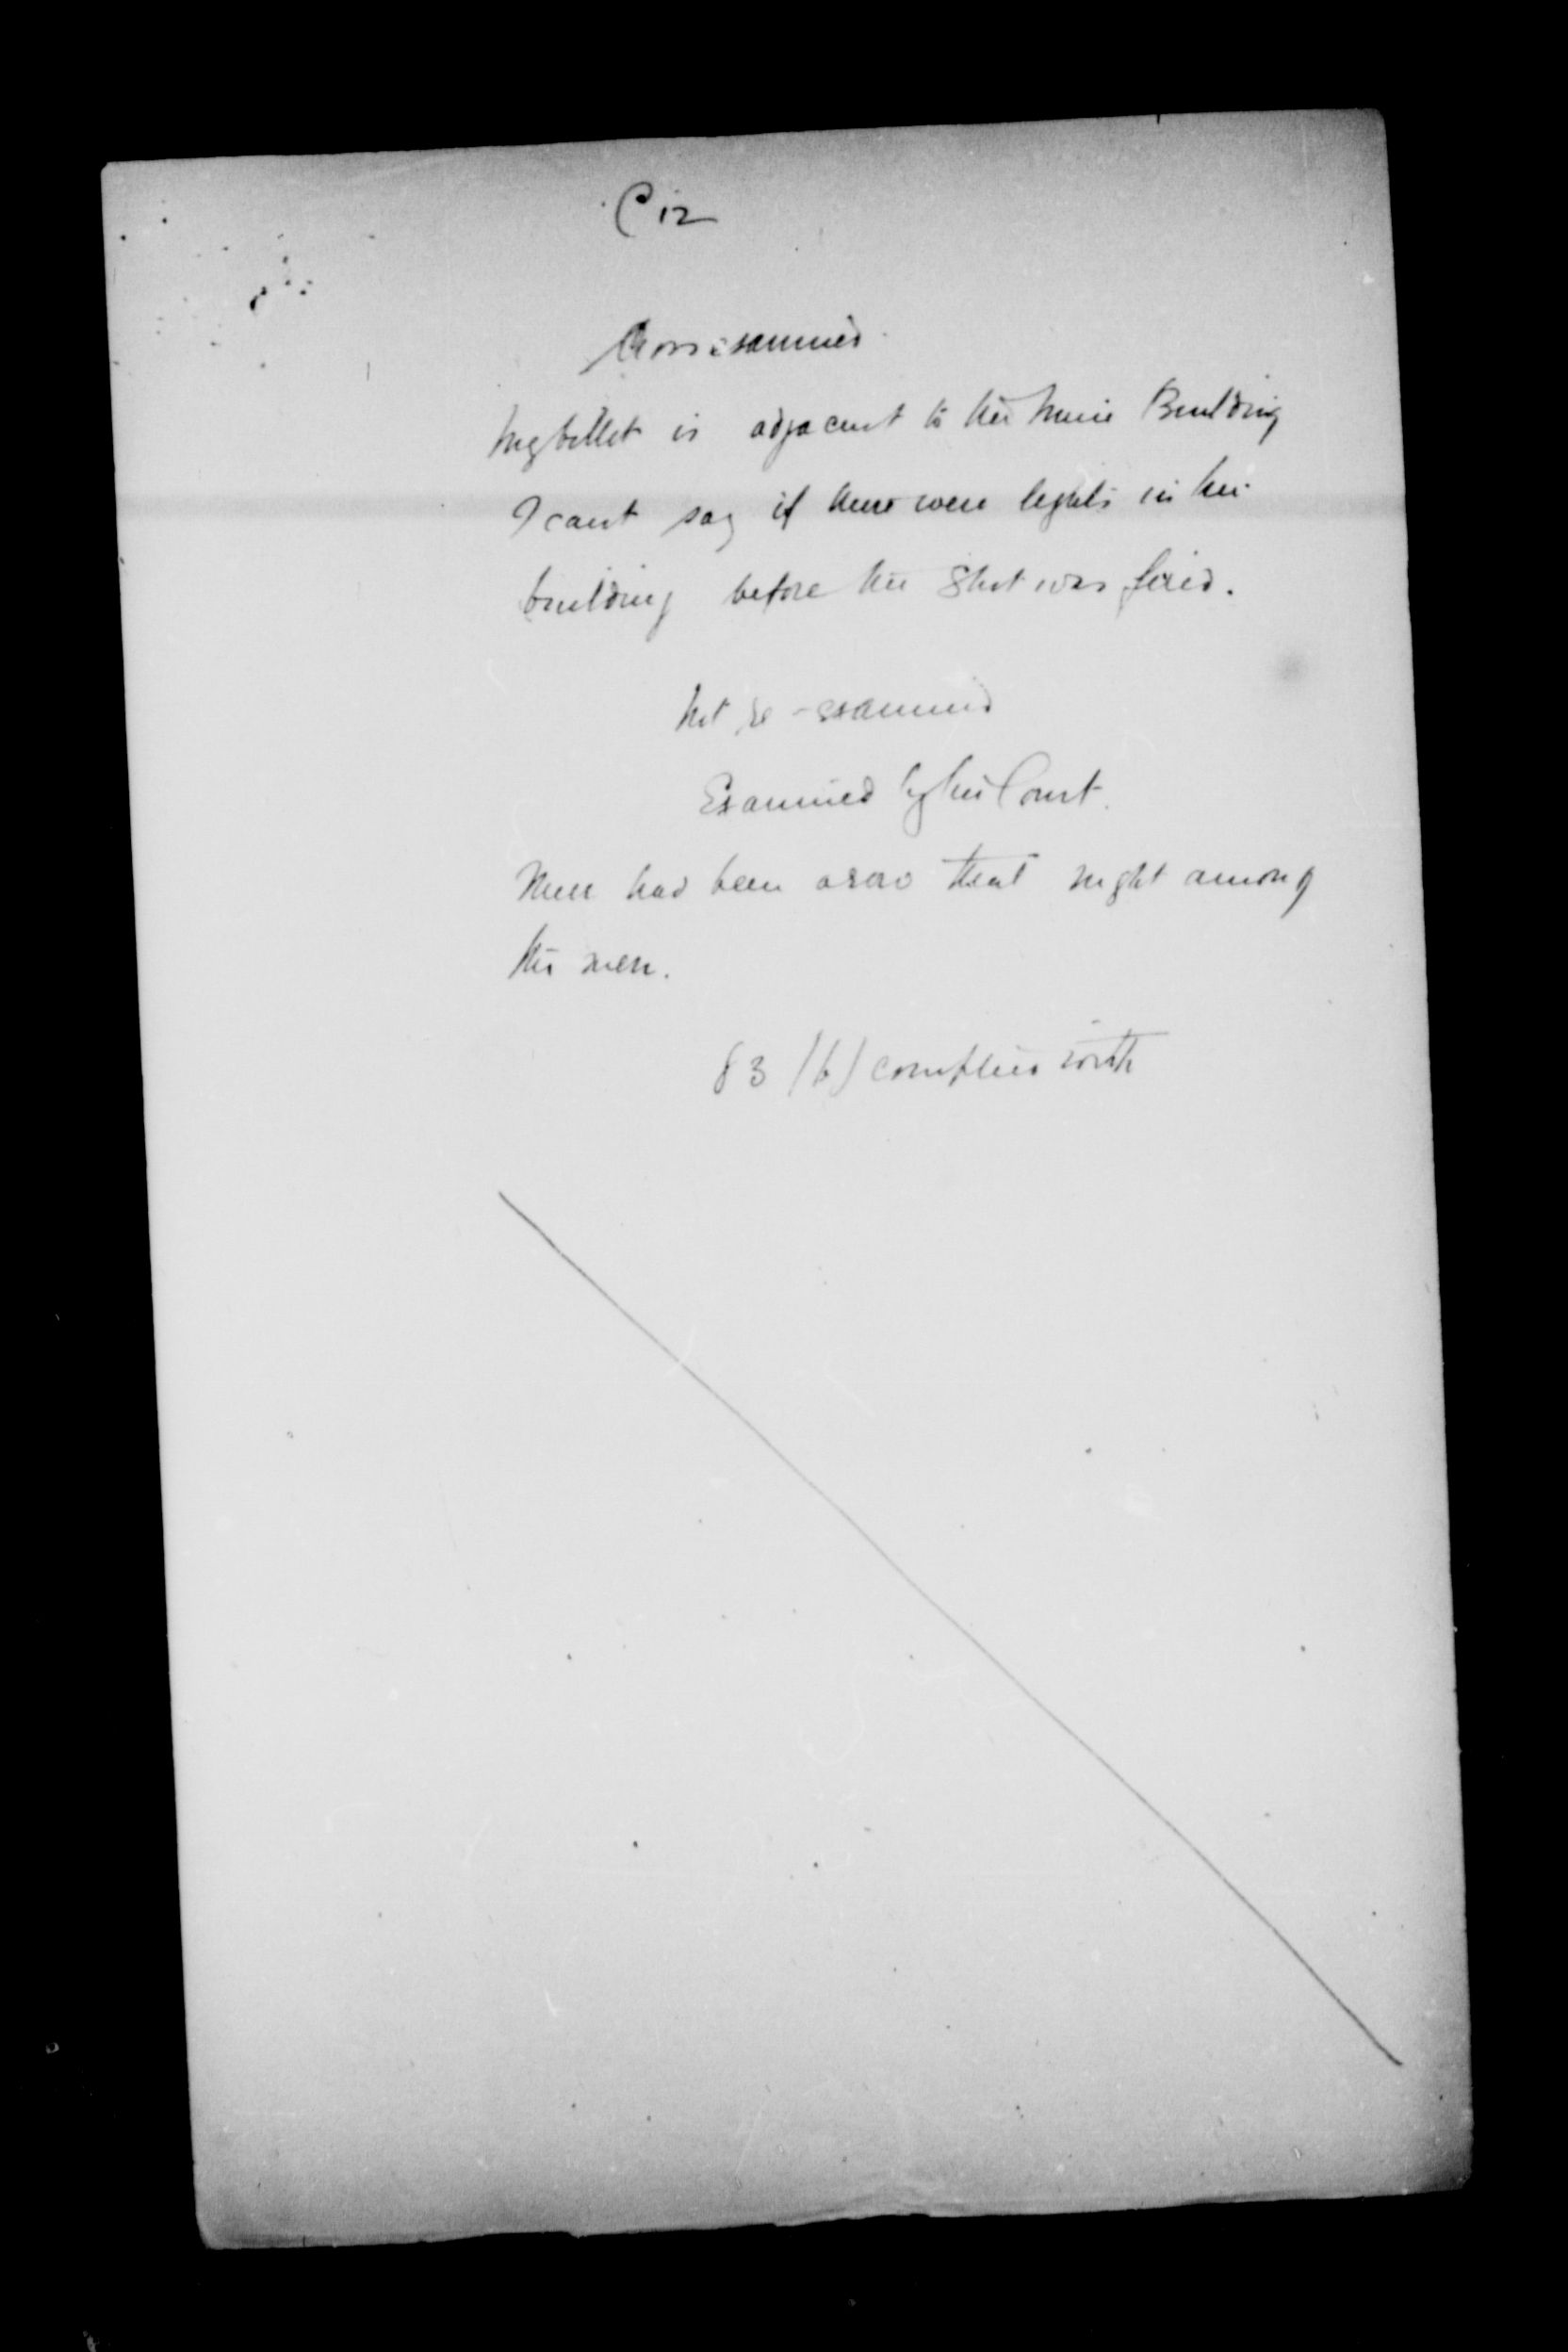 C 12
Cross examined.
My billet is adjacent to the Mine Building
I cant say if there were lights in the
building before the shot was fired.
Not re-examined
Examined by the Court.
There had been a row that night among
the men.
83 (b) complied with